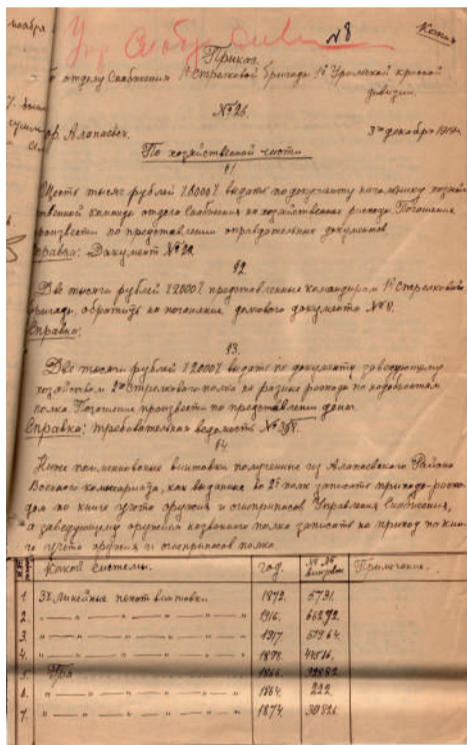 №8
Копия
Приказ.
отделу Снабжения 1й Стрелковой бригады 1й Уральской красной
дивизии.
№26.
гор. Алапаевск. 3го декабря
По хозяйственной части
§1
Шесть тысяч рублей выдать по документу начальнику хозяй
ственной команды отдела Снабжения на хозяйственные расходы. Погашение
произвести по представлении оправдательных документов
Справка: Документ №
§2
Две тысячи рублей /2000/ представленные командиром 1й Стрелковой
бригады, обратить на погашение долгового документа №
Справка:
§3.
Две тысячи рублей /2000/ выдать по документу заведующему
хозяйством 2го Стрелкового полка на разные расхода по надобностям
полка. Погашение произвести по представлении
Справка: требовательная ведомость №
§4
Ниже поименованные винтовки полученные из Алапаевского Района
Военного комиссариата, как выданные во 2й полк записать приходо-расхо-
дом по книге учета оружия и огнеприпасов Управления Снабжения,
а заведующему оружием названного полка записать на приход по кни-
ге учета оружия и огнеприпасов полка.
Какой системы. год. №№ винтовок Примечание.
1. 3х линейные пехот. винтовки 1892. 5731.
2. — " — " — " — " — " — 1916. 66292.
3. — " — " — " — " — " — 1917
4. — " — " — " — " — " —
5.
6. — " — " — " — " — " — 222.
7. — " — " — " — " — " — 1874